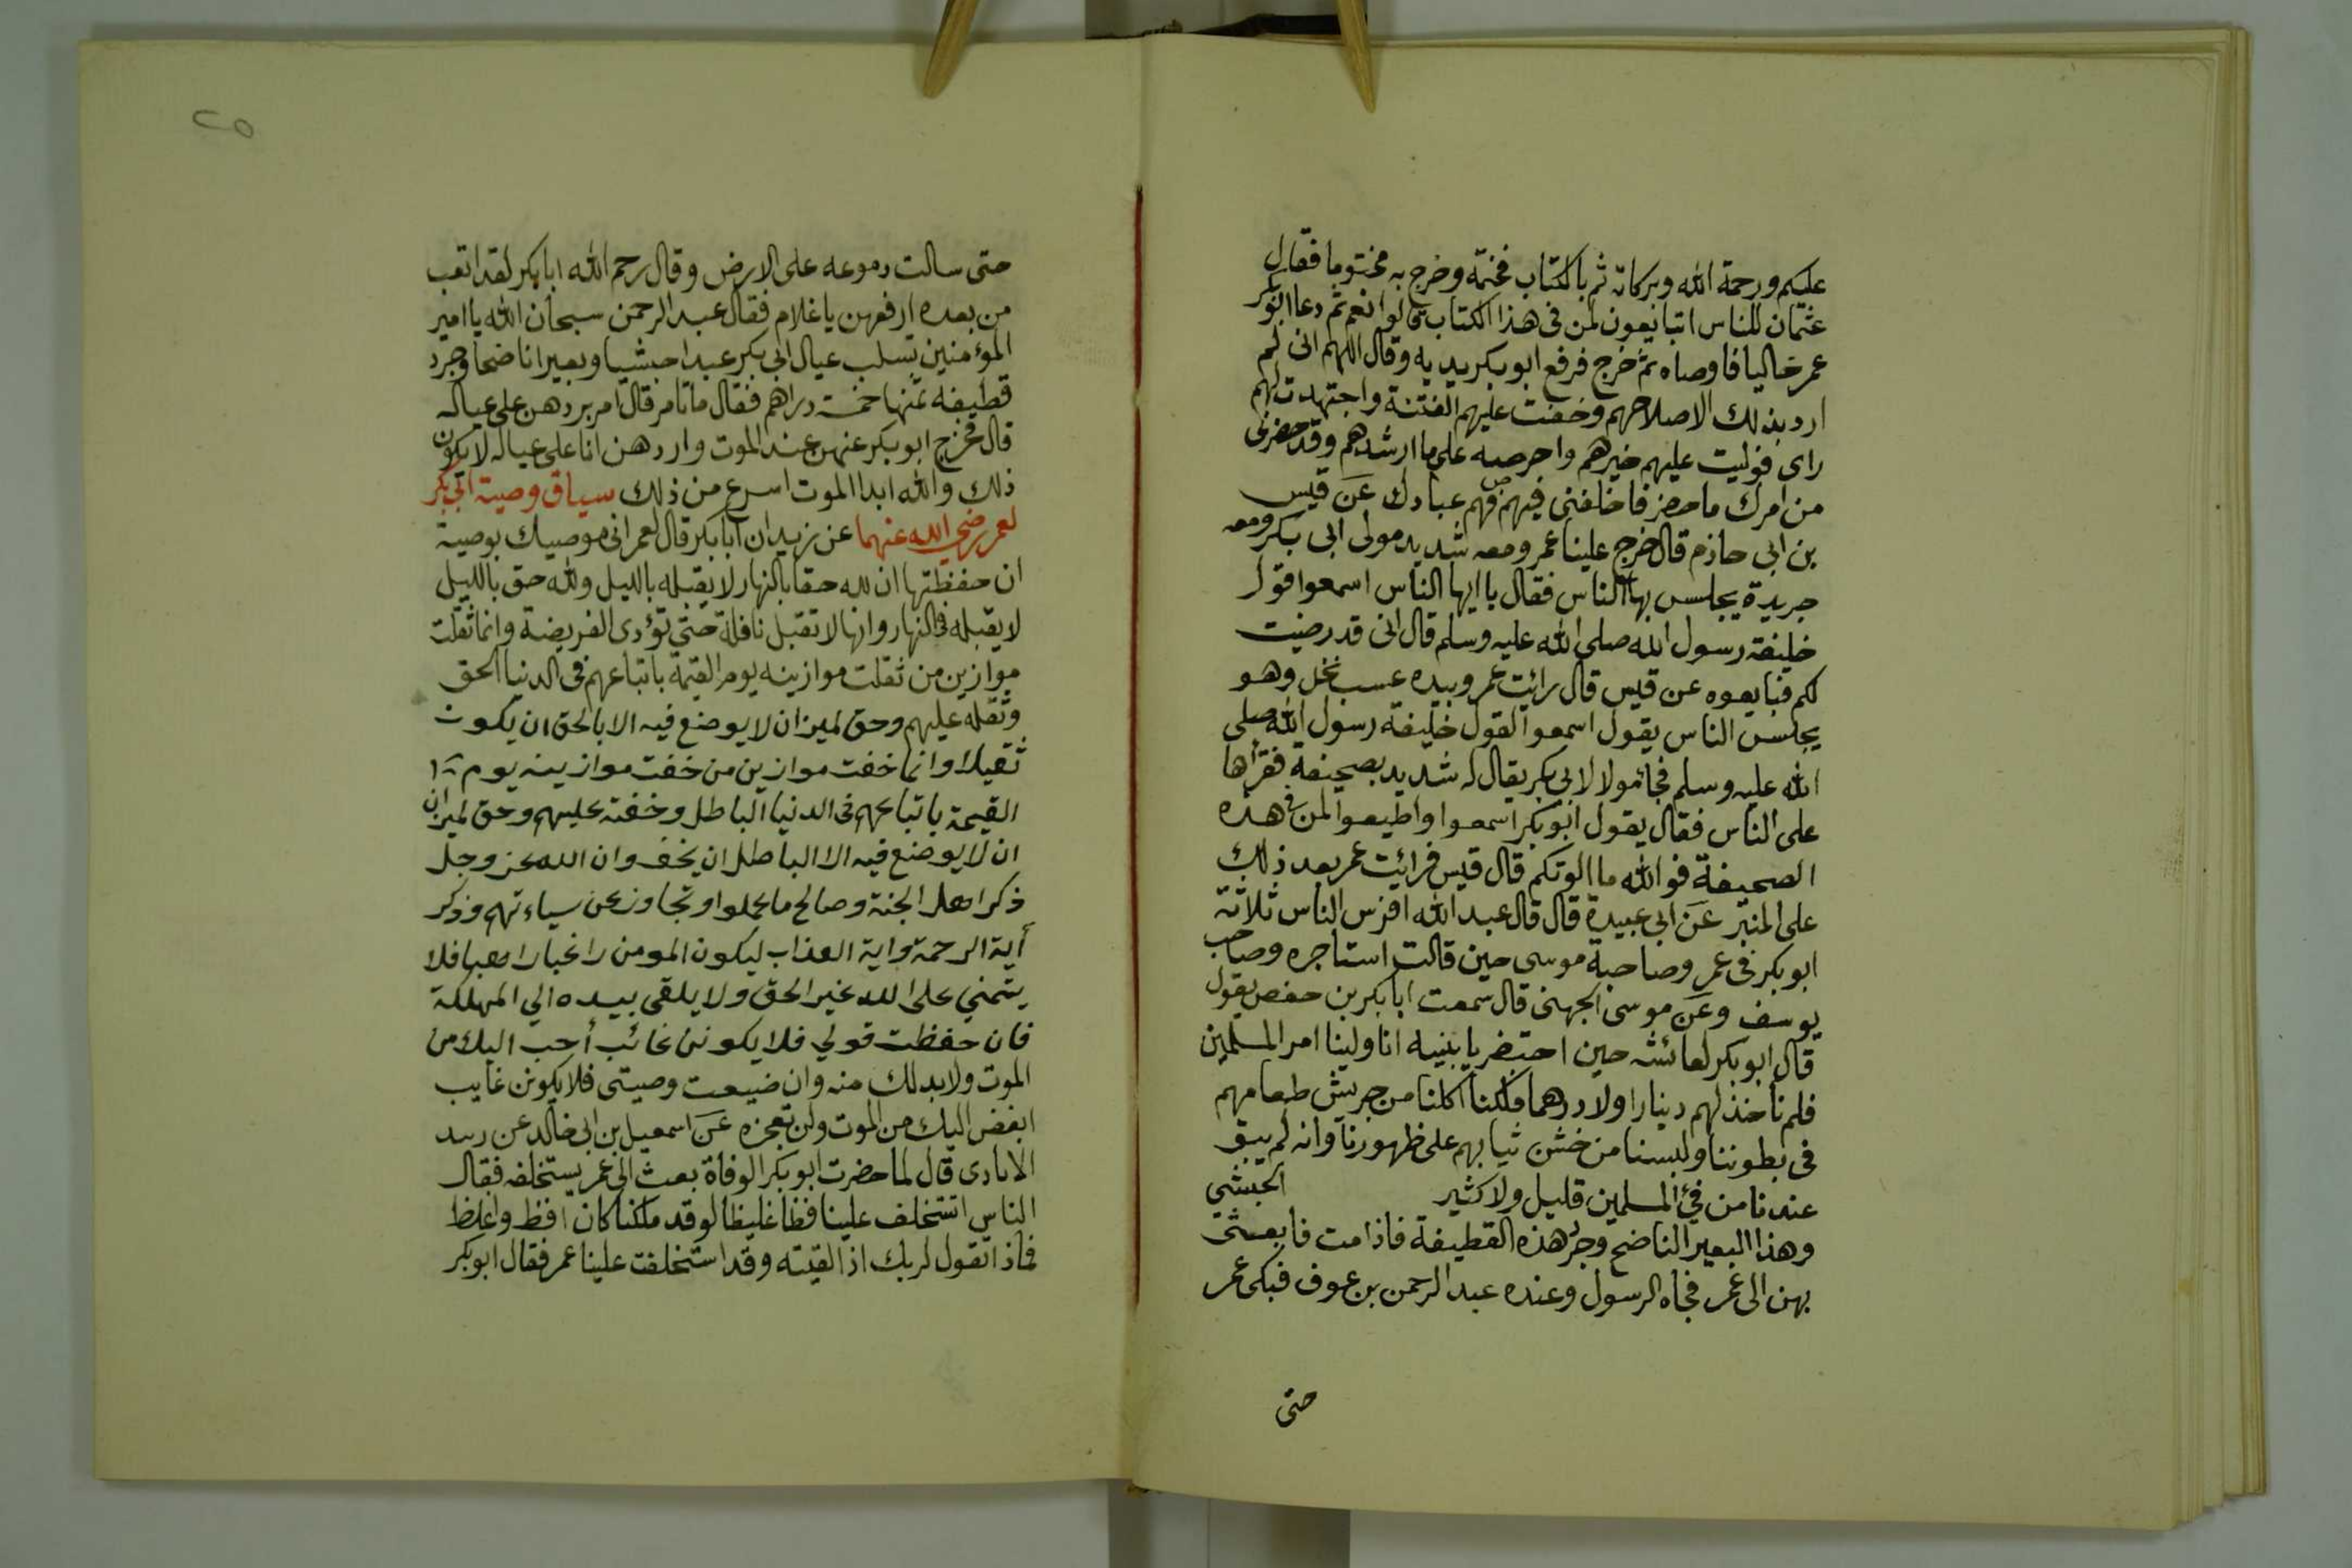 عليكم ورحمة الله وبركاته ثم بالكتاب فختمه وخرج به مختوما فقال
عثمان للناس اتبايعون لمن فى هذا الكتاب قالوا نعم ثم دعا ابوبكر
عمر خاليا فاوصاه ثم خرج فرفع ابو بكر يديه وقال اللهم انى لم
ارد بذلك الا صلاحهم وخفت عليهم الفتنة واجتهدت لهم
راى فوليت عليهم خيرهم واحرصه على ما ارشدهم وقد حضرنى
من امرك ما حضر فاخلفنى فيهم فهم عبادك عن قيس
بن ابى حازم قال خرج علينا عمر ومعه شديد مولى ابى بكر ومعه
جريدة يجلس بها الناس فقال يا ايها الناس اسمعوا قول
خليفة رسول الله صلى الله عليه وسلم قال انى قد رضيت
لكم فبايعوه عن قيس قال رائيت عمر وبيده عسب نخل وهو
يجلس الناس يقول اسمعوا القول خليفة رسول الله صلى
الله عليه وسلم فجا مولا لابى بكر يقال له شديد بصحيفة فقراها
على الناس فقال يقول ابو بكر اسمعوا واطيعوا لمن فى هذه
الصحيفة فوالله ما الوتكم قال قيس فرائيت عمر بعد ذلك
على المنبر عن ابى عبيدة قال قال عبد الله افرس الناس ثلاثة
ابو بكر فى عمر وصاحبة موسى حين قالت استاجره وصاحب
يوسف وعن موسى الجهنى قال سمعت ابا بكر بن حفص يقول
قال ابو بكر لعائشه حين احتضر يا بنيه انا ولينا امر المسلمين
فلم ناخذ لهم دينارا ولا درهما ولكنا اكلنا من جريش طعامهم
فى بطوننا ولبسنا من خشن ثيابهم على ظهورنا وانه لم يبق
عندنا من فئ المسلمين قليل ولا كثير الحبشي
وهذا البعير الناضح وجرد هذه القطيفة فاذا مت فابعثى
بهن الى عمر فجاه الرسول وعنده عبد الرحمن بن عوف فبكى عمر
حتى
٢٥
حتى سالت دموعه على الارض وقال رحم الله ابا بكر لقد اتعب
من بعده ارفعهن يا غلام فقال عبد الرحمن سبحان الله يا امير
المؤمنين تسلب عيال ابى بكر عبدا حبشيا وبعيرا ناضحا وجرد
قطيفه ثمنها خمسة دراهم فقال ما تامر قال امر بردهن على عياله
قال خرج ابو بكر عنهن عند الموت واردهن انا على عياله لا يكون
ذلك والله ابدا الموت اسرع من ذلك سياق وصية ابى بكر
لعمر رضي الله عنهما عن زبيد ان ابا بكر قال لعمر انى موصيك بوصية
ان حفظتها ان لله حقا بالنهار لا يقبله بالليل ولله حق بالليل
لا يقبله فى النهار وانها لا تقبل نافلة حتى تؤدى الفريضة وانما ثقلت
موازين من ثقلت موازينه يوم القيمة باتباعهم فى الدنيا الحق
وثقله عليهم وحق لميزان لا يوضع فيه الا بالحق ان يكون
ثقيلا وانما خفت موازين من خفت موازينه يوم
القيمة باتباعهم فى الدنيا الباطل وخفته عليهم وحق لميزان
ان لا يوضع فيه الا الباطل ان يخف وان الله عز وجل
ذكر اهل الجنة وصالح ما عملوا وتجاوز عن سياءتهم وذكر
أية الرحمة واية العذاب ليكون المومن راغبا راهبا فلا
يتمني على الله غير الحق ولا يلقى بيده الي المهلكة
فان حفظت قولي فلا يكونن غائب أحب اليك من
الموت ولا بد لك منه وان ضيعت وصيتى فلا يكونن غايب
ابغض اليك من الموت ولن تعجزه عن اسمعيل بن ابى خالد عن
قال لما حضرت ابو بكر الوفاة بعث الى عمر يستخلفه فقال
الناس اتستخلف علينا فظا غليظا لو قد ملكنا كان افظ واغلظ
فماذا تقول لربك اذا لقيته وقد استخلفت علينا عمر فقال ابو بكر